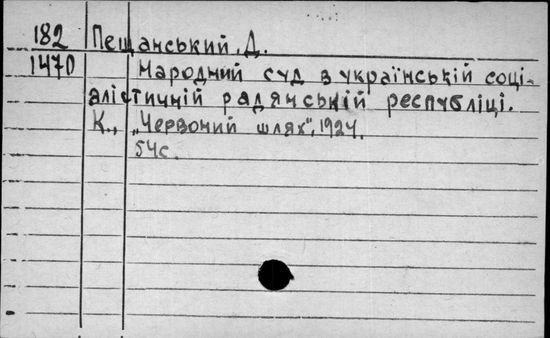 182 Пещанський, Д.
1470 Народний суд в українській соці-
алістичній радянській республіці.
К., „Червоний шлях", 1924.
54с.